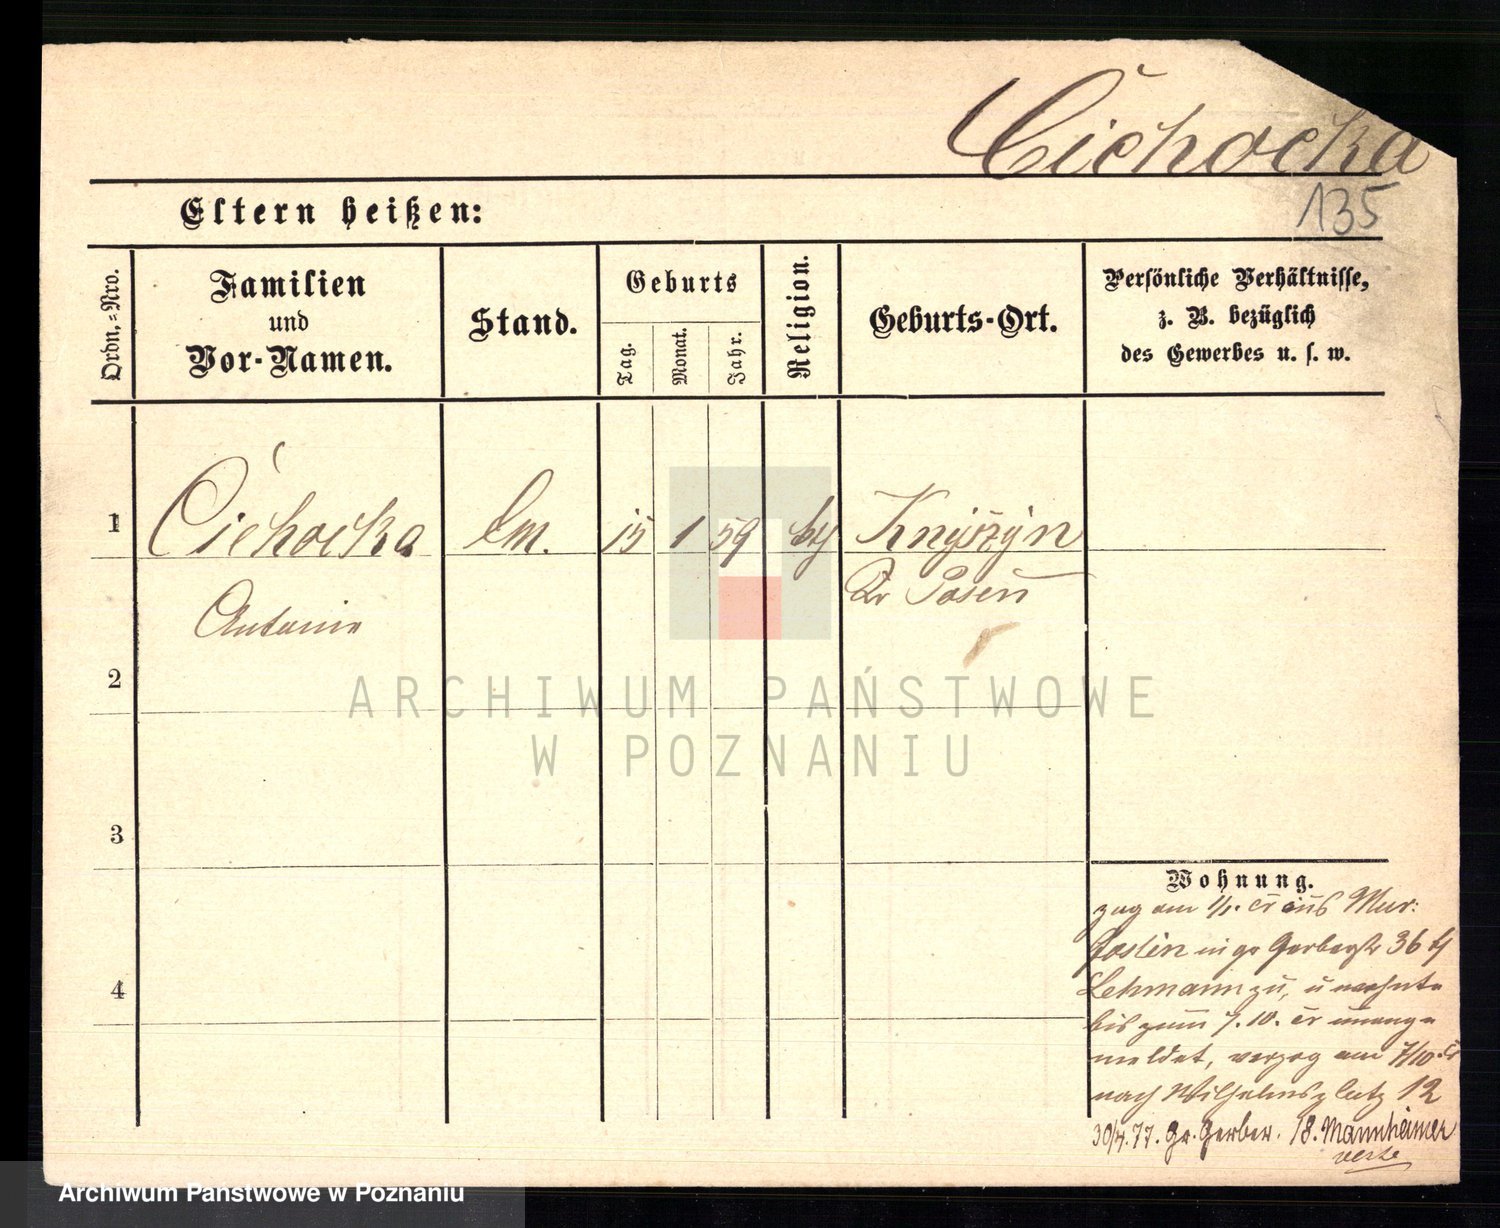 Cichocka
135
Eltern heißen:
Ordn.-Nro.
Familien
und
Vor-Namen.
Stand.
Geburts
Tag.
Monat.
Jahr.
Religion.
Geburts-Ort.
Persönliche Verhältnisse,
z. B. bezüglich
des Gewerbes u. s. w.
1
Cichocka
15
1
59
Knyszyn
Kr Posen
Antonie
2
ARCHIWUM PAŃSTWOWE
W POZNANIU
3
Wohnung.
zog am 1/1. cr aus Mur:
Goslin in gr Gerberstr 36 bei
4
Lehmann zu, u wohnte
bis zum 7.10. cr unange
meldet, verzog am 7/10. cr
nach Wilhelmsplatz 12
30/4.77. Gr. Gerber. 18. Mannheimer
verte
Archiwum Państwowe w Poznaniu